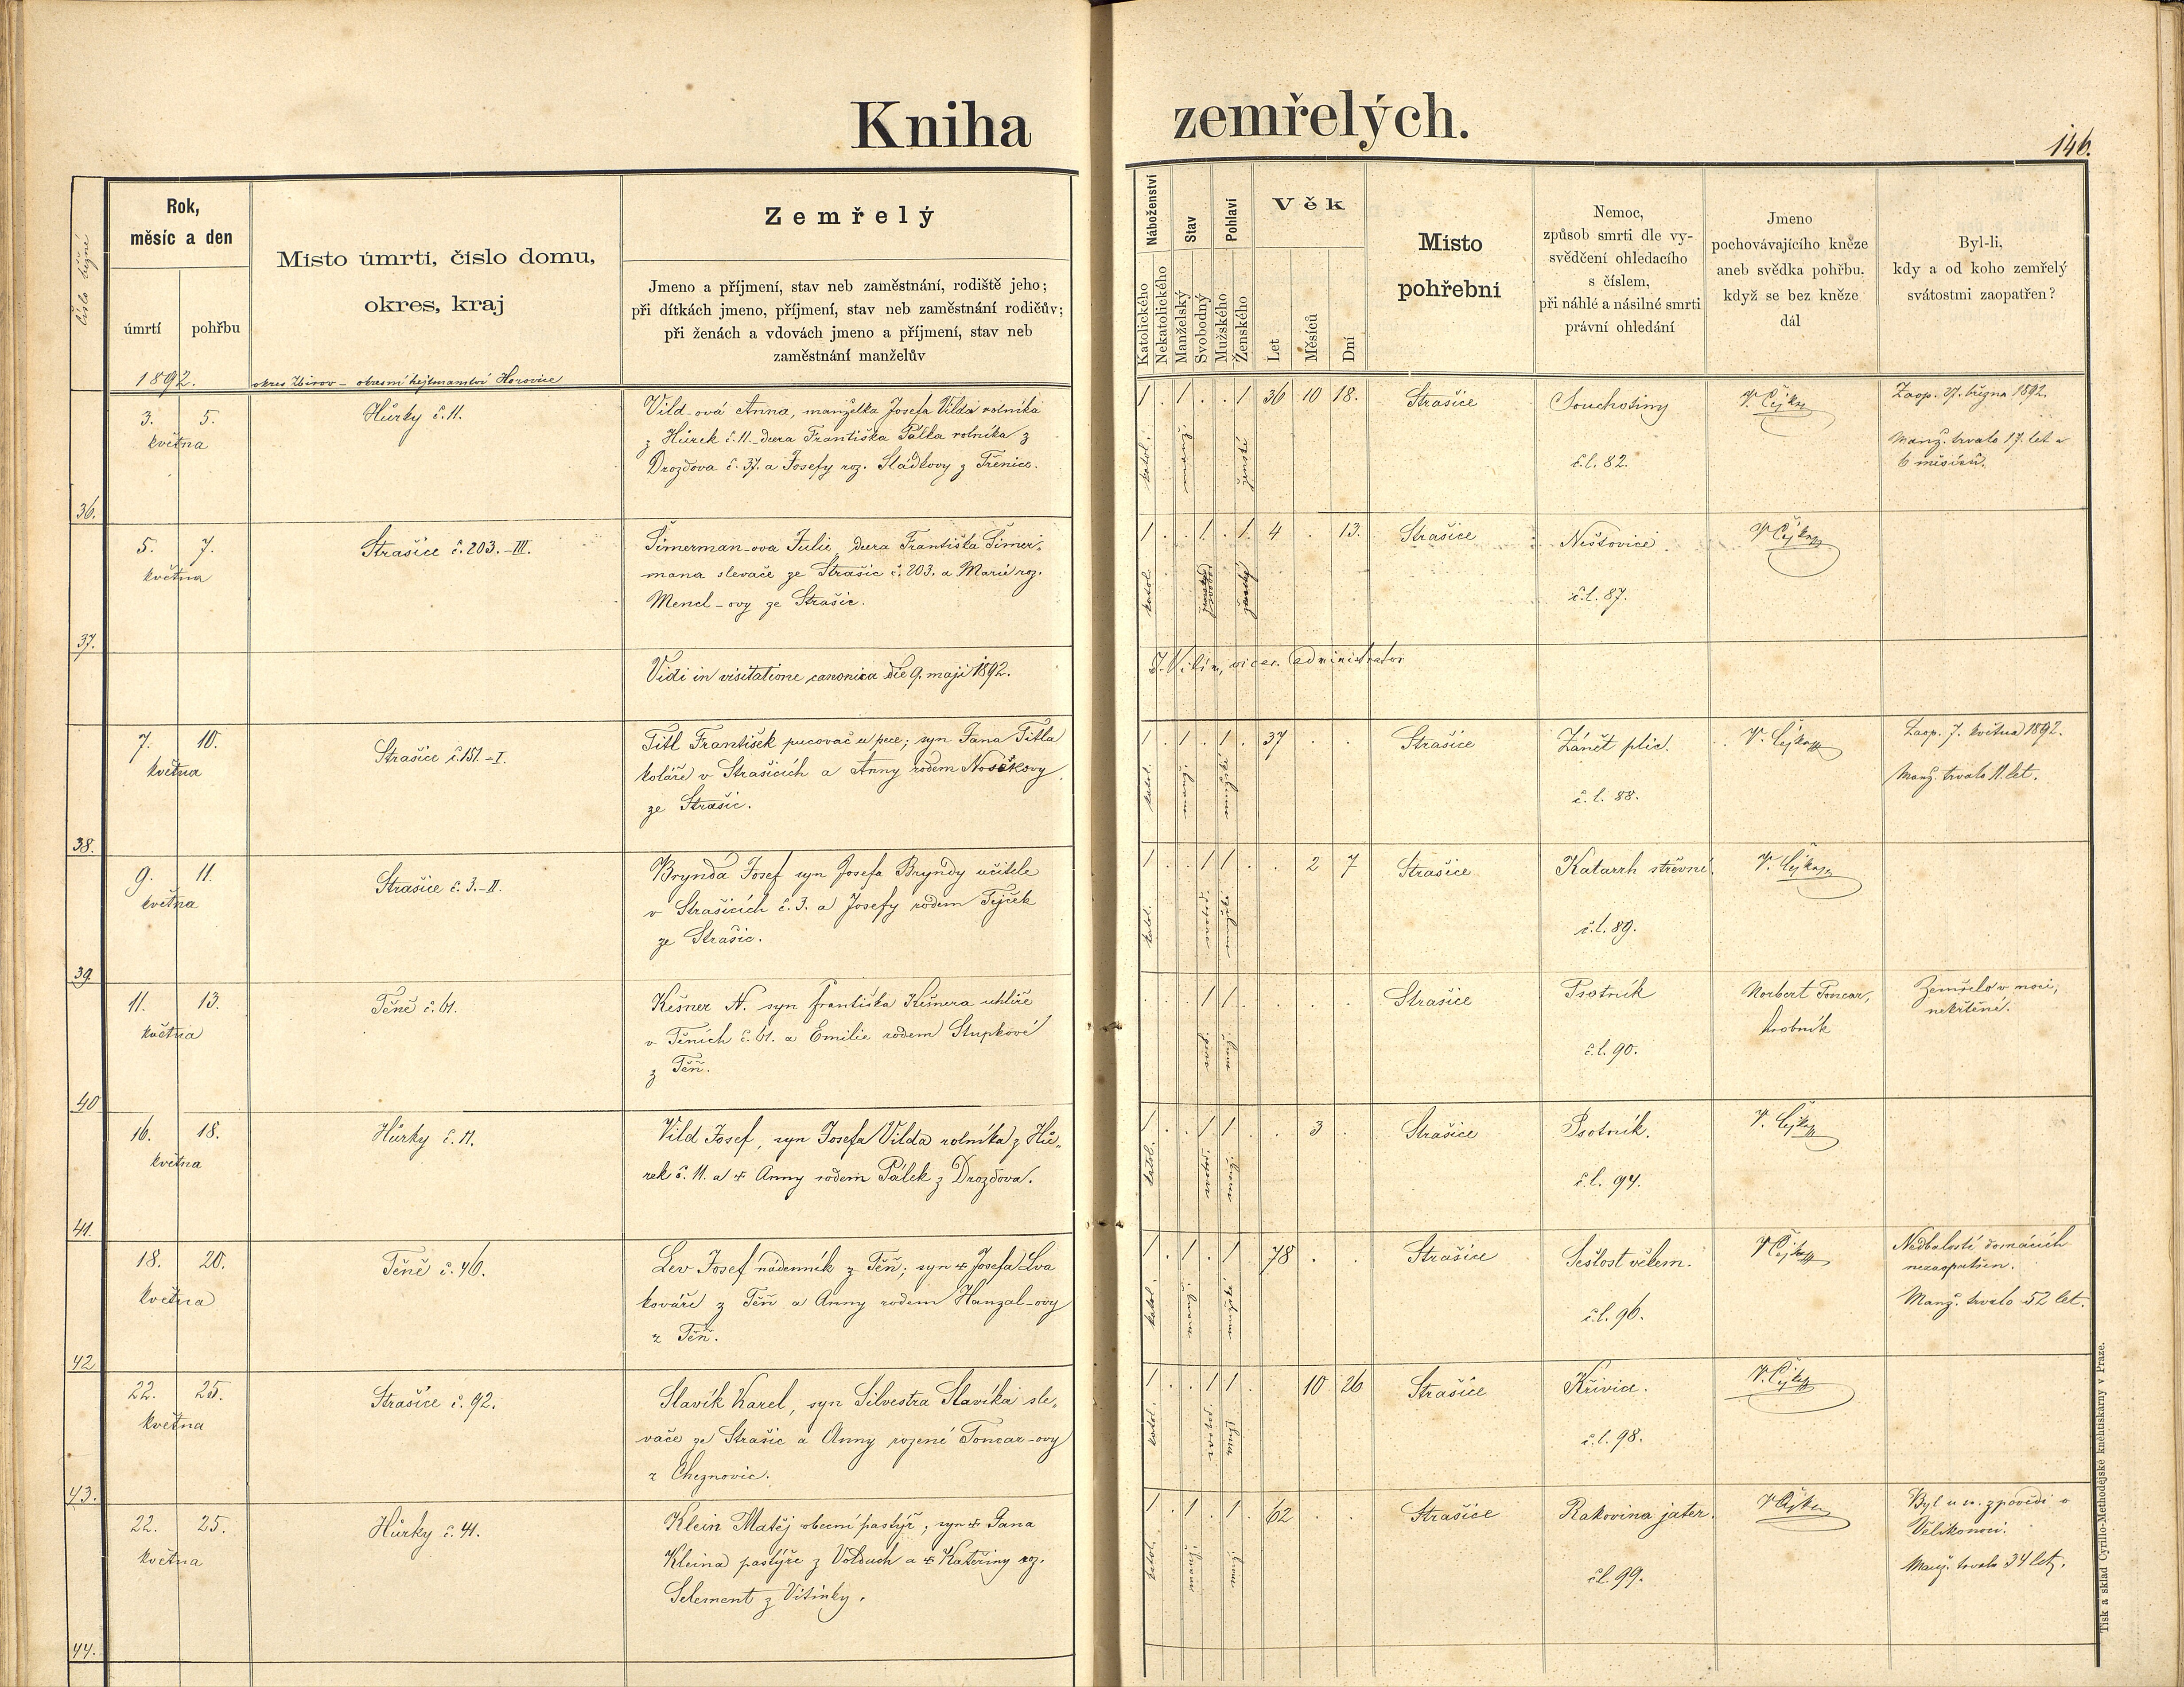 Kniha zemřelých.
146.
číslo běžné
Rok,
měsíc a den
úmrtí
pohřbu
Místo úmrtí, číslo domu,
okres, kraj
Zemřelý
Jmeno a příjmení, stav neb zaměstnání, rodiště jeho;
při dítkách jmeno, příjmení, stav neb zaměstnání rodičův;
při ženách a vdovách jmeno a příjmení, stav neb
zaměstnání manželův
Náboženství
Katolického
Nekatolického
Stav
Manželský
Svobodný
Pohlaví
Mužského
Ženského
Věk
Let
Měsíců
Dní
Místo
pohřební
Nemoc,
způsob smrti dle vy-
svědčení ohledacího
s číslem,
při náhlé a násilné smrti
právní ohledání
Jmeno
pochovávajícího kněze
aneb svědka pohřbu,
když se bez kněze
dál
Byl-li,
kdy a od koho zemřelý
svátostmi zaopatřen?
1892.
okres Zbirov - okresní hejtmanství Horovice
36.
3. 5.
května
Hůrky č. 11.
Vild-ová Anna, manželka Josefa Vilda rolníka
z Hůrek č. 11. - dcera Františka Pálka rolníka z
Drozdova č. 37. a Josefy roz. Sládkovy z Třenice.
1 . 1 . . 1 36 10 18.
katol.
ženské
Strašice
Souchotiny
č. l. 82.
V. Čejka
Zaop. 27. března 1892.
Manž. trvalo 17. let a
6 měsíců.
37.
5. 7.
května
Strašice č. 203. - III.
Šimerman-ova Julie, dcera Františka Šimer-
mana slevače ze Strašic č. 203. a Marie roz.
Mencl-ovy ze Strašic.
1 . . 1 . 1. 4 . 13.
katol.
Strašice
Neštovice.
č. l. 87.
V. Čejka
Vidi in visitatione canonica die 9. maji 1892.
J. Vilím, vicar. administrator
38.
7. 10.
května
Strašice č. 151. - I.
Titl František pucovač u pece; syn Jana Titla
koláře v Strašicích a Anny rodem Noskovy
ze Strašic.
1 . 1 . 1 . 37 . .
katol.
Strašice
Zánět plic.
č. l. 88.
V. Čejka
Zaop. 7. května 1892.
Manž. trvalo 11. let.
39.
9. 11.
května
Strašice č. 3. - II.
Brynda Josef syn Josefa Bryndy učitele
v Strašicích č. 3. a Josefy rodem Tejček
ze Strašic.
1 . . 1 1 . . 2 7
katol.
Strašice
Katarrh střevní.
č. l. 89.
V. Čejka
40
11. 13.
května
Těně č. 61.
Kešner N. syn Františka Kešnera uhlíře
v Těních č. 61. a Emilie rodem Stupkové
z Těň.
. . . 1 1 . . . .
Strašice
Psotník
č. l. 90.
Norbert Toncar,
hrobník
Zemřelo v noci,
nekřtěné.
41.
16. 18.
května
Hůrky č. 11.
Vild Josef, syn Josefa Vilda rolníka z Hů-
rek č. 11. a + Anny rodem Pálek z Drozdova.
1 . . 1 1 . . 3 .
katol.
Strašice
Psotník.
č. l. 94.
V. Čejka
42
18. 20.
května
Těně č. 46.
Lev Josef nádenník z Těň; syn + Josefa Lva
kováře z Těň a Anny rodem Hanzal-ovy
z Těň.
1 . 1 . 1 . 78 . .
katol.
Strašice
Sešlost věkem.
č. l. 96.
V. Čejka
Nedbalostí domácích
nezaopatřen.
Manž. trvalo 52 let.
43.
22. 25.
května
Strašice č. 92.
Slavík Karel, syn Silvestra Slavíka sle-
vače ze Strašic a Anny rozené Toncar-ovy
z Cheznovic.
1 . . 1 1 . . 10 26
katol.
Strašice
Křivice.
č. l. 98.
V. Čejka
44.
22. 25.
května
Hůrky č. 41.
Klein Matěj obecní pastýř, syn + Jana
Kleina pastýře z Volduch a + Kateřiny roz.
Selement z Vitinky.
1 . 1 . 1 . 62 . .
katol.
Strašice
Rakovina jater.
č. l. 99.
V. Čejka
Byl u sv. zpovědi o
Velikonoci.
Manž. trvalo 34 let.
Tisk a sklad Cyrillo-Methodějské knihtiskárny v Praze.